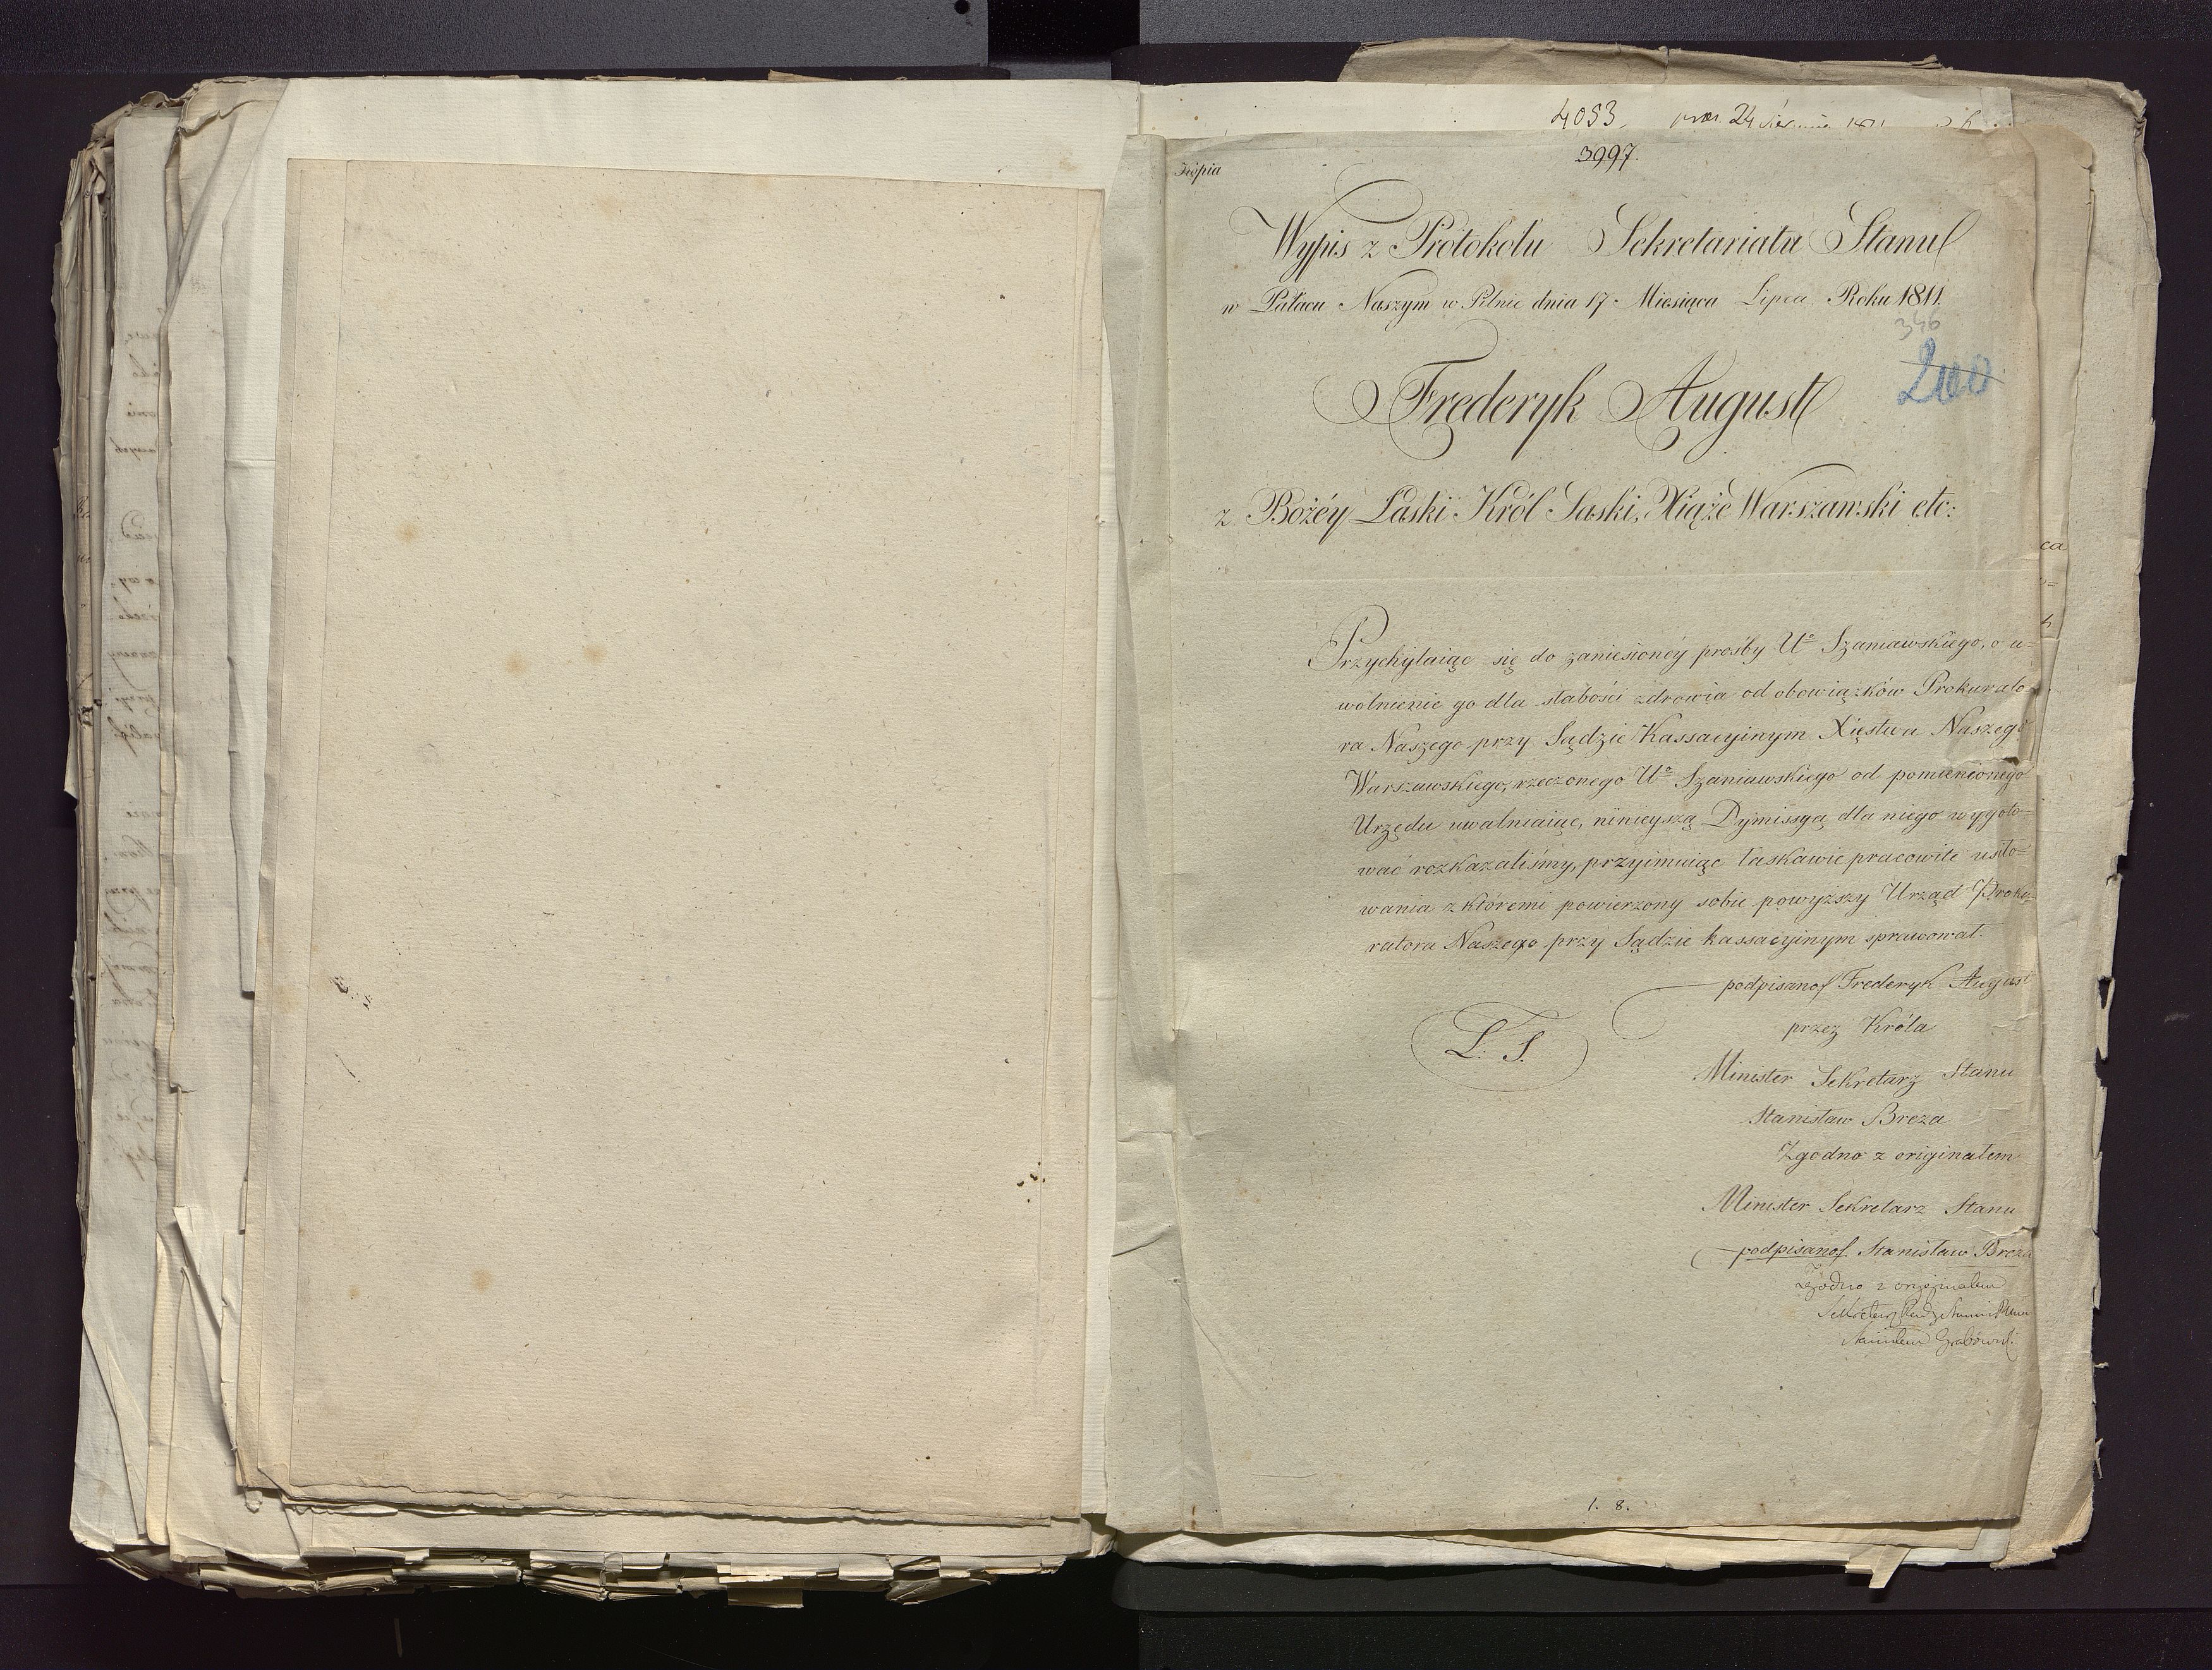 4053. 24
3997.
Kopia
Wypis z Protokołu Sekretariatu Stanu
w Pałacu Naszym w Pilnic dnia 17 Miesiąca Lipca Roku 1811.
346
200
Frederyk August
z Bożéy Łaski Król Saski, Xiąże Warszawski etc:
Przychylaiąc się do zaniesionéy prośby Uo Szaniawskiego, o u=
wolnienie go dla słabości zdrowia od obowiązków Prokurato
ra Naszego przy Sądzie Kassacyinym Xięstwa Naszego
Warszawskiego, rzeczonego Uo Szaniawskiego od pomienionego
Urzędu uwalniaiąc, ninieyszą Dymissyą dla niego wygoto=
wać rozkazaliśmy, przyimuiąc łaskawie pracowite usiło=
wania z któremi powierzony sobie powyższy Urząd Proku=
ratora Naszego przy Sądzie kassacyinym sprawował.
podpisano/ Frederyk August
przez Króla
L. S.
Minister Sekretarz Stanu
Stanisław Breza
Zgodno z originałem
Minister Sekretarz Stanu
podpisano/ Stanisław Breza
Zgodno z oryginałem
Sekretarz
Grabowski
1. 8.